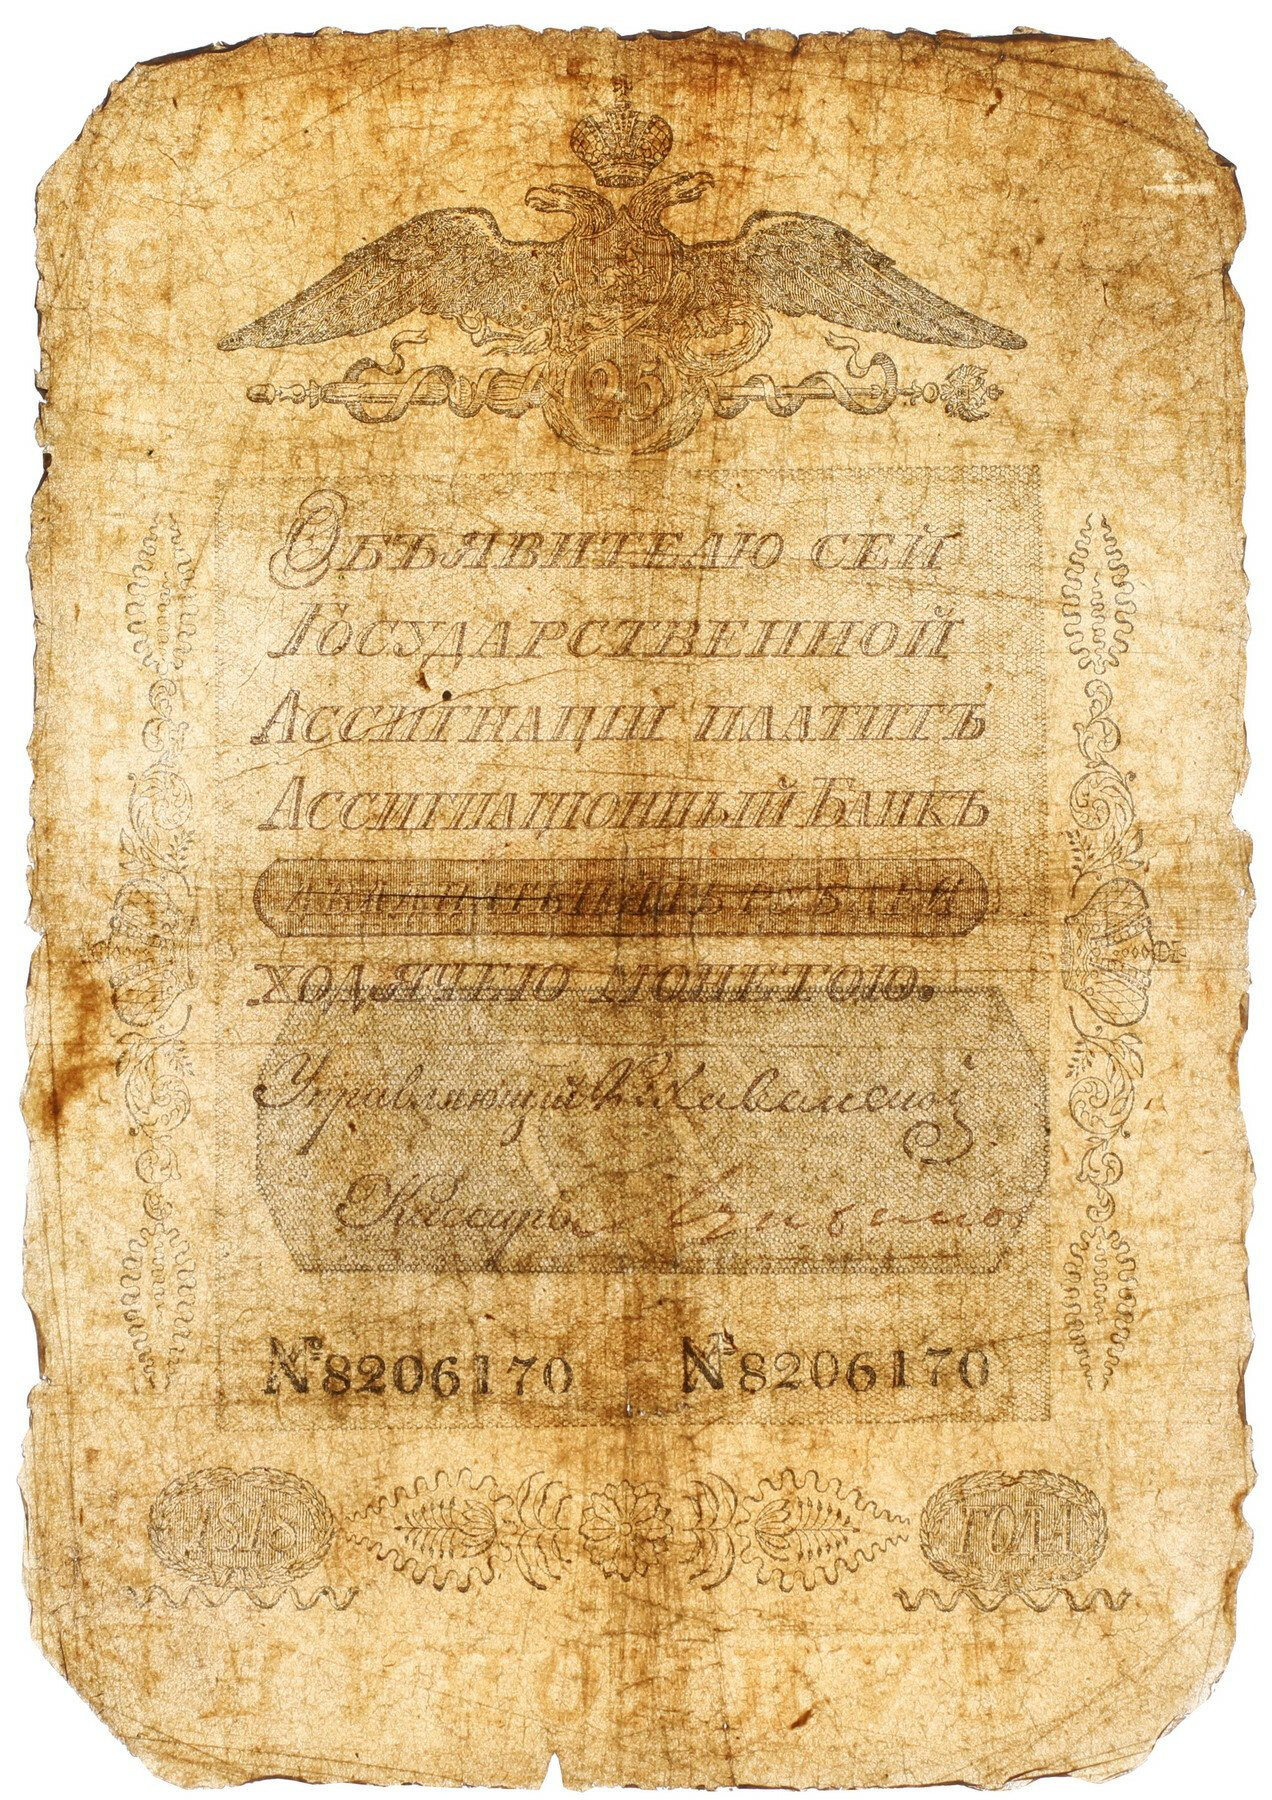 25
Объявителю сей
Государственной
Ассигнаціи платитъ
Ассигнаціонный Банкъ
двадцать пять рублей
ходячею монетою.
Управляющий
Кассиръ
№ 8206170 № 8206170
1818 года